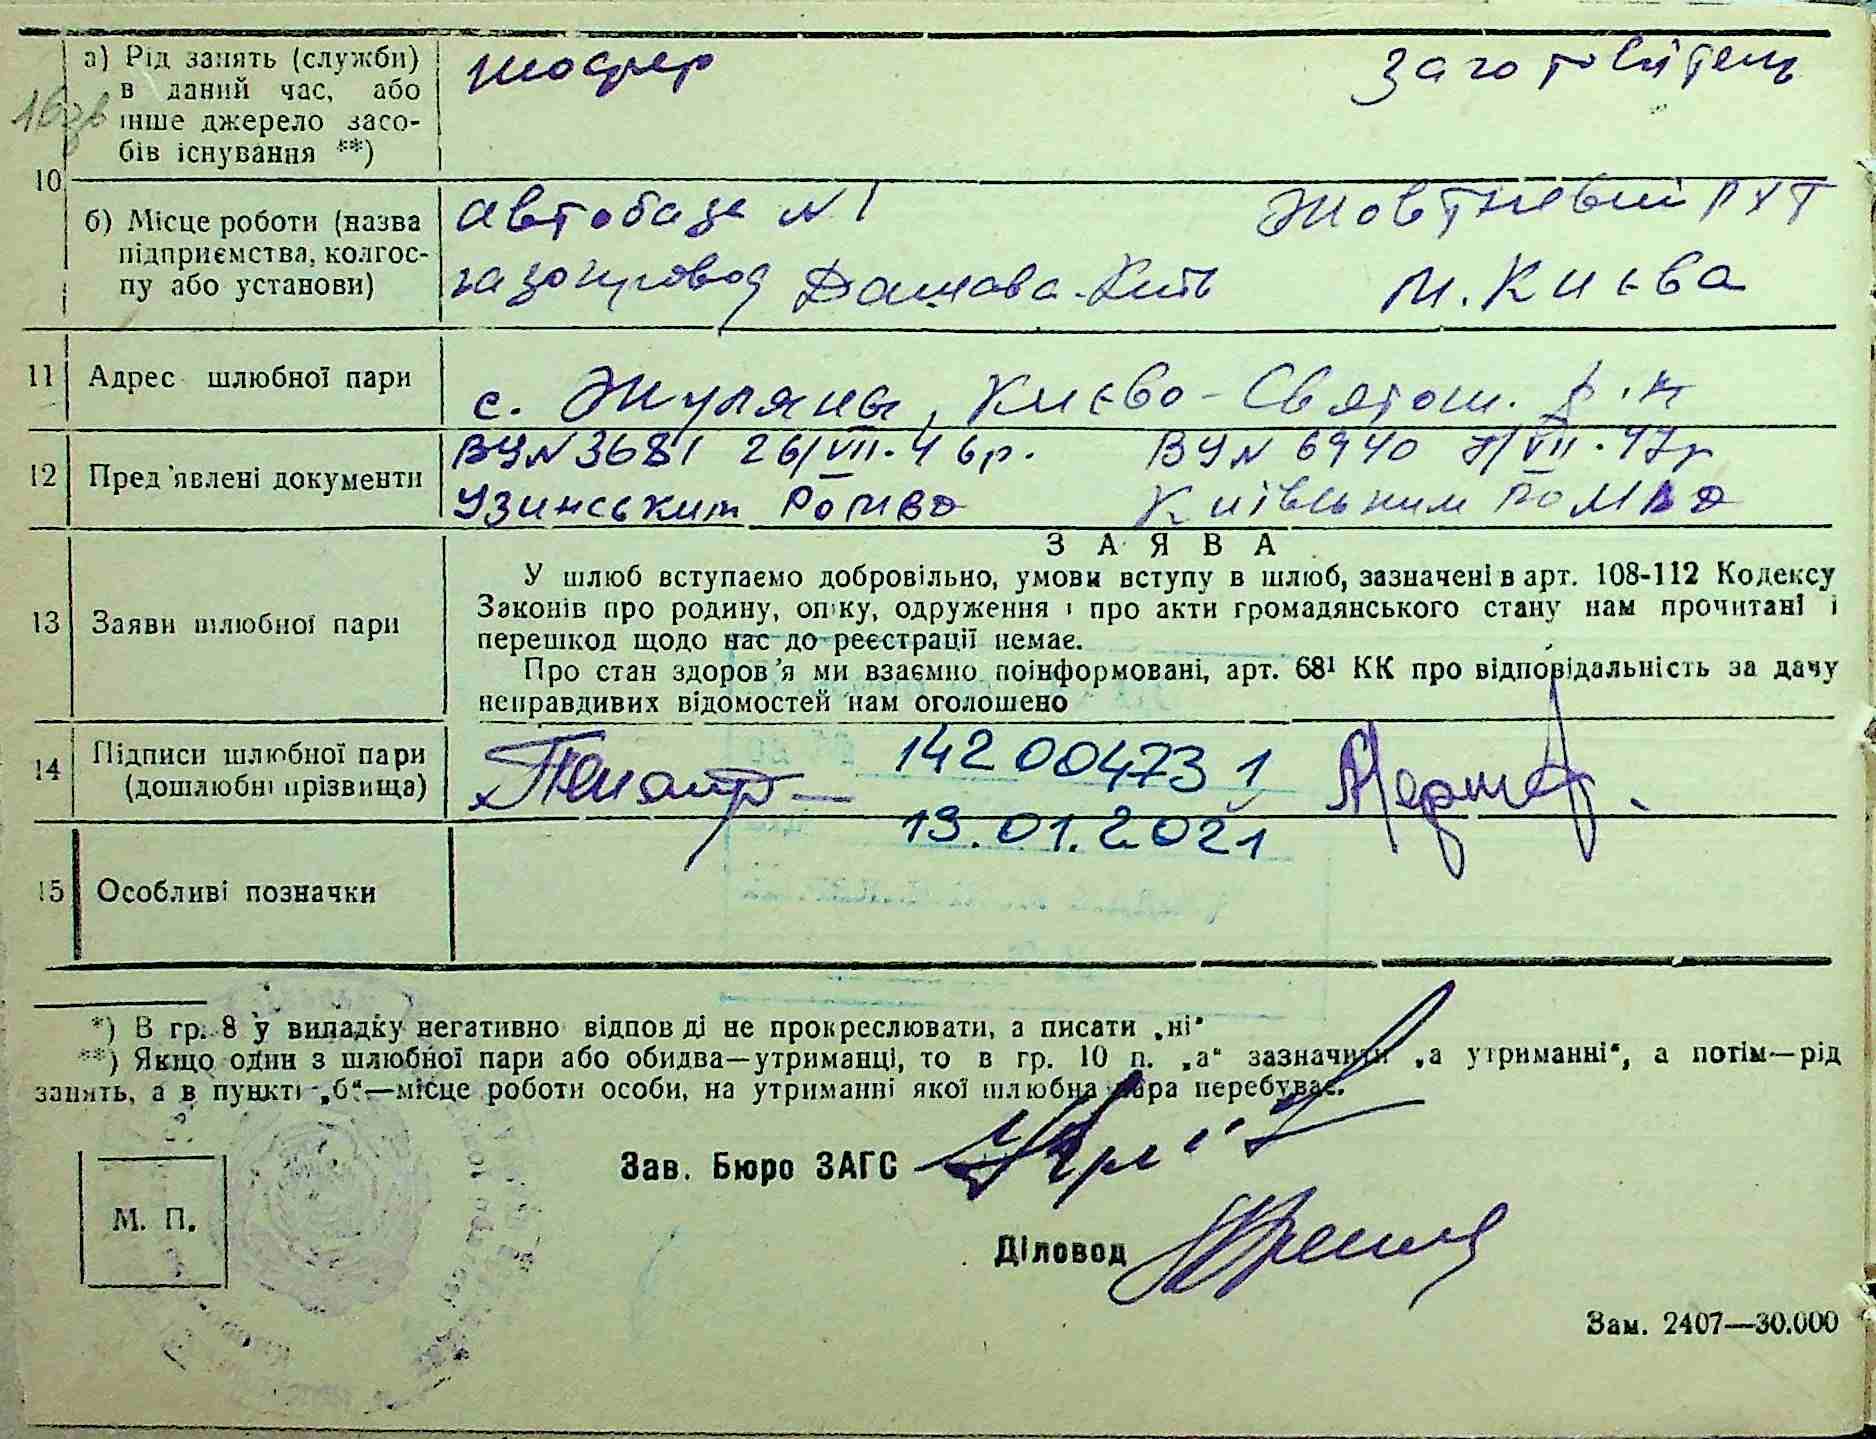 а) Рід занять (служби) в даний час, або інше джерело засобів існування **)
шофер
заготовітель
16зв
10
б) Місце роботи (назва підприємства, колгоспу або установи)
автобаза №1
Жовтневий РХТ
газопровод Дашава-Київ
м. Києва
11 Адрес шлюбної пари
с. Жуляни, Києво-Святош. р-н
12 Пред'явлені документи
ВУ№3681 26/VII-46р.
ВУ№ 6940 /VII-47р
Узинським РОМВД
Київським РОМВД
ЗАЯВА
13 Заяви шлюбної пари
У шлюб вступаємо добровільно, умови вступу в шлюб, зазначені в арт. 108-112 Кодексу
Законів про родину, опіку, одруження і про акти громадянського стану нам прочитані і
перешкод щодо нас до реєстрації немає.
Про стан здоров'я ми взаємно поінформовані, арт. 68¹ КК про відповідальність за дачу
неправдивих відомостей нам оголошено
14 Підписи шлюбної пари
(дошлюбні прізвища)
142004731
19.01.2021
15 Особливі позначки
*) В гр. 8 у випадку негативно відпов ді не прокреслювати, а писати „ні"
**) Якщо один з шлюбної пари або обидва—утриманці, то в гр. 10 п. „а" зазначити „а утриманні", а потім—рід
занять, а в пункті „б"—місце роботи особи, на утриманні якої шлюбна пара перебуває.
Зав. Бюро ЗАГС
М. П.
Діловод
Зам. 2407—30.000